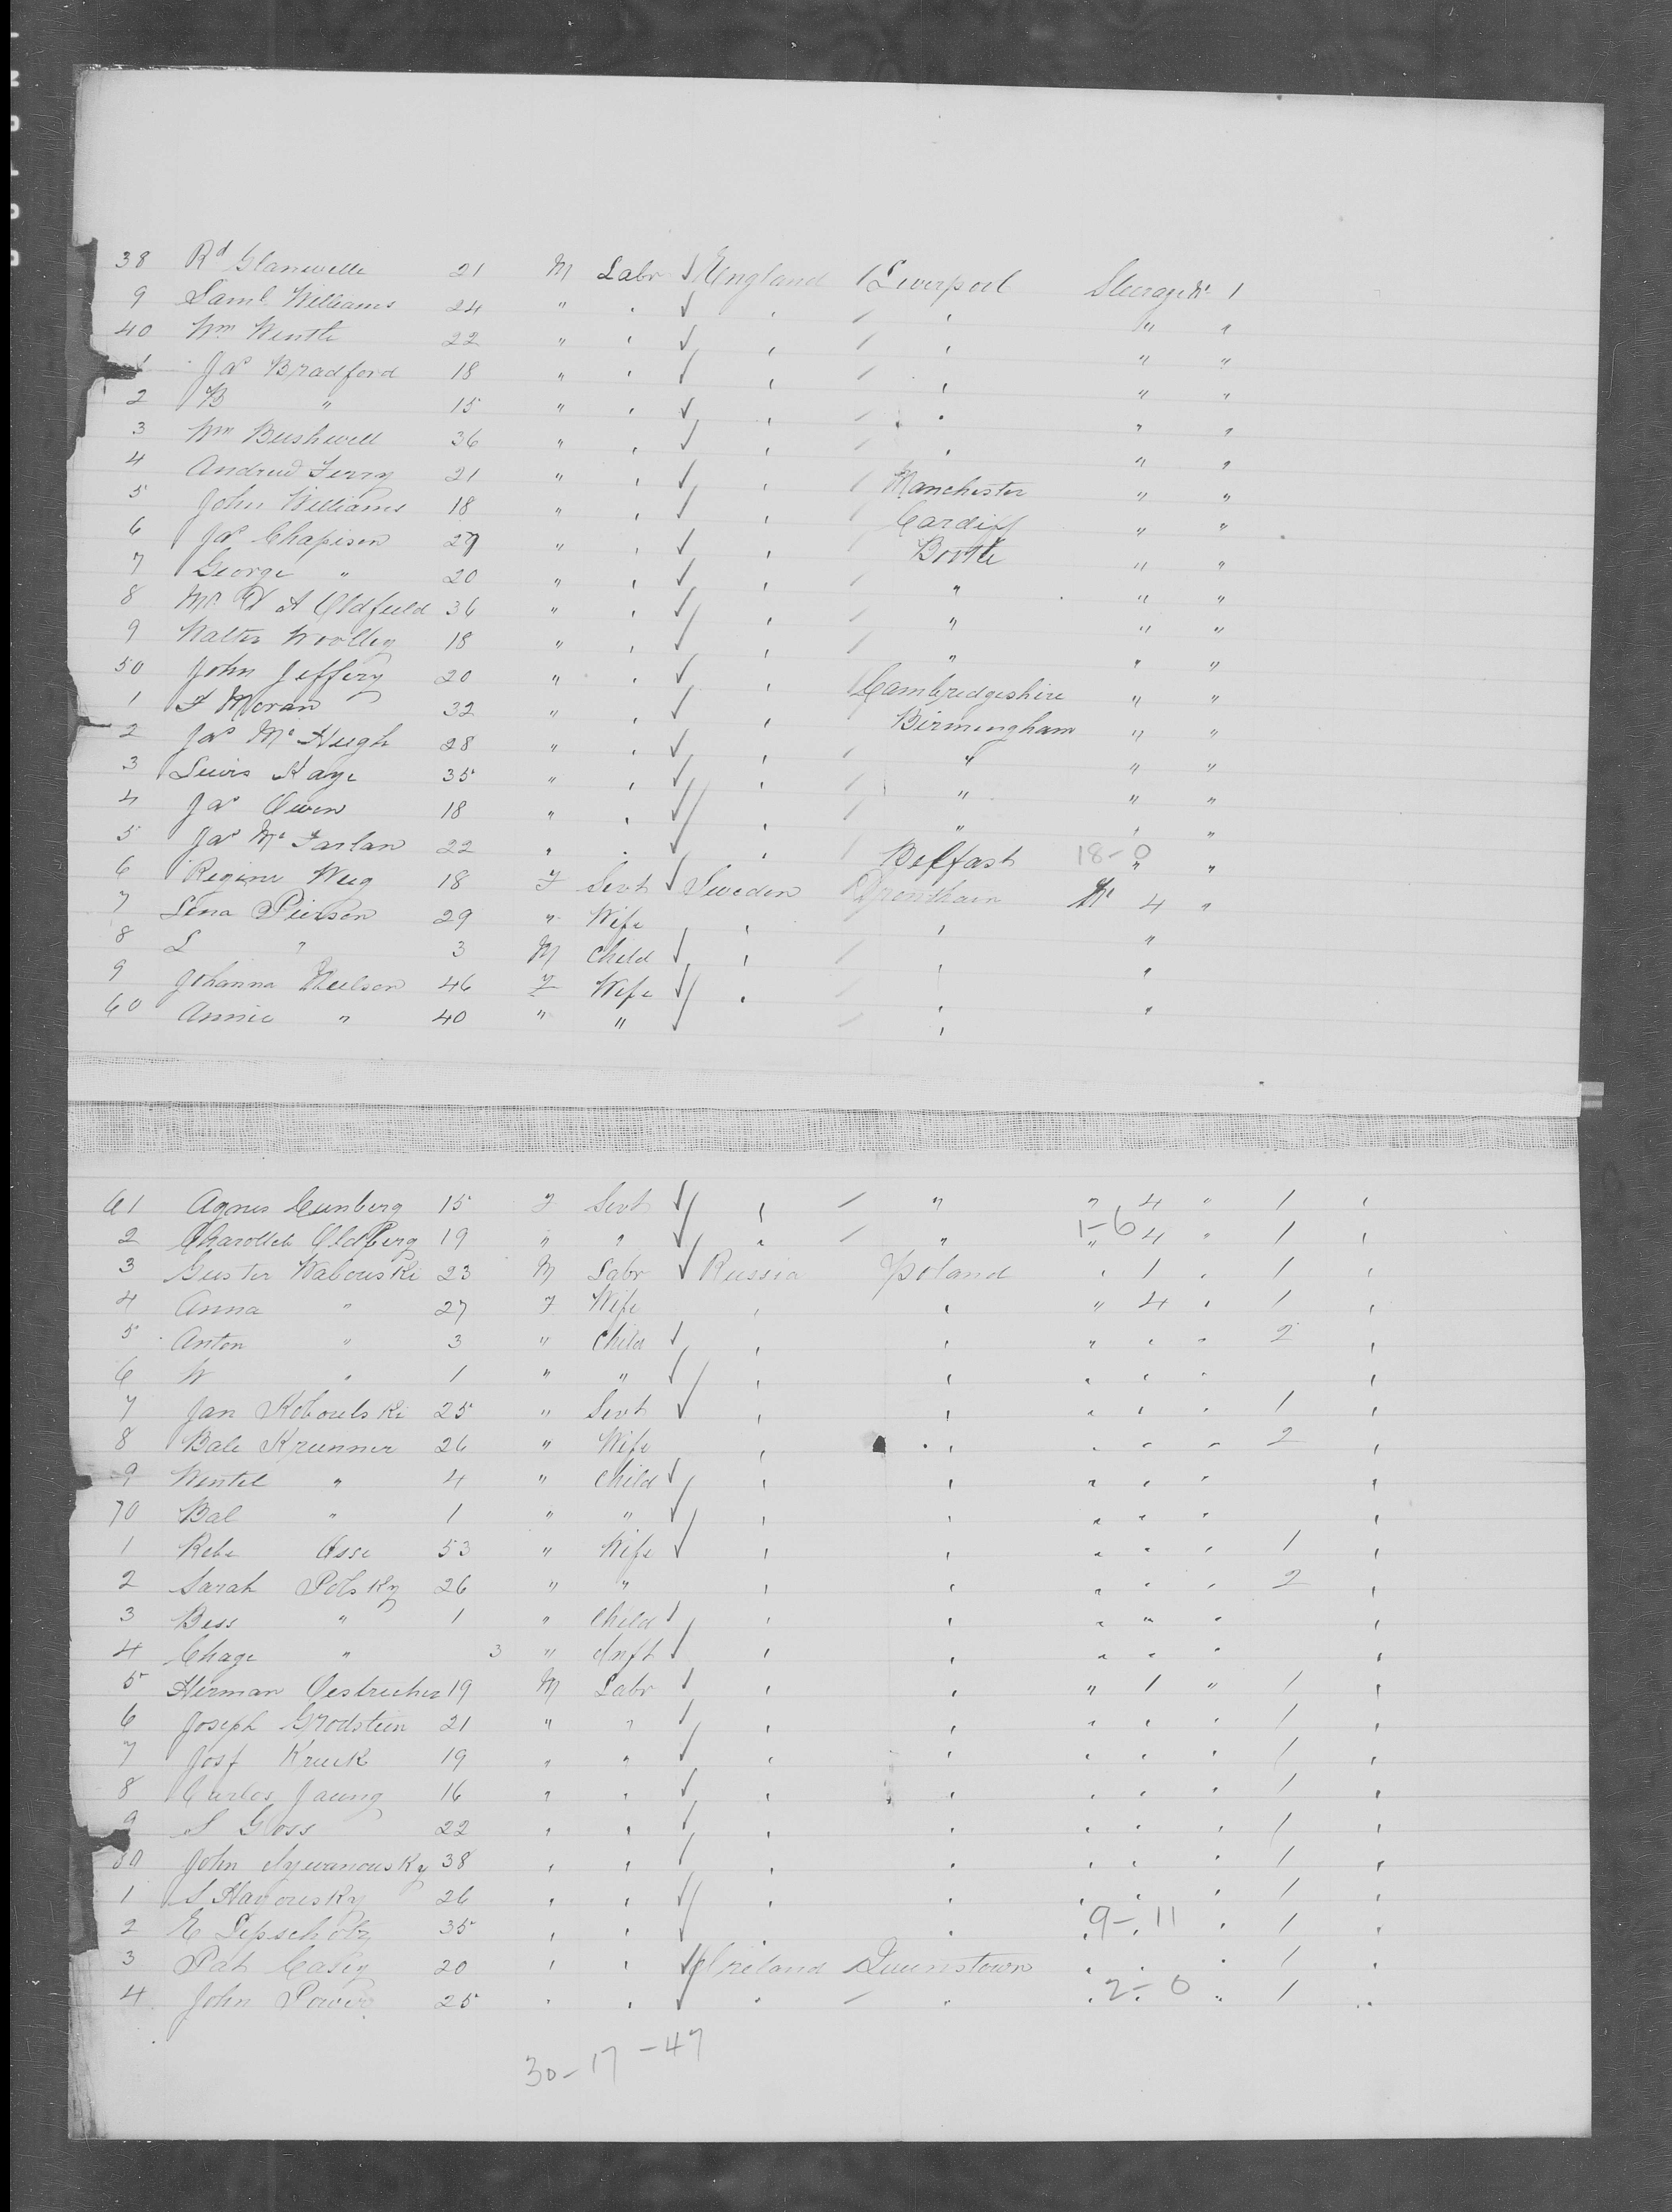 38 Rd Glanville 21 M Labr England Liverpool Steerage No 1
9 Saml Williams 24 " " " " " "
40 Wm 22 " " " " " "
1 Jas Bradford 18 " " " " " "
2 B " 15 " " " " " "
3 Wm Bushwell 36 " " " " " "
4 Andrew Terry 21 " " " Manchester " "
5 John Williams 18 " " " Cardiff " "
6 Jas Chapison 29 " " " Bootle " "
7 George " 20 " " " " " "
8 A Oldfield 36 " " " " " "
9 Walter Woolley 18 " " " " " "
50 John Jeffery 20 " " " Cambridgeshire " "
1 F Moran 32 " " " Birmingham " "
2 Jas McHugh 28 " " " " " "
3 Lewis Kaye 35 " " " " " "
4 Jas Owen 18 " " " " " "
5 Jas McFarlan 22 " " " Belfast 18-0 " "
6 Regine 18 F Servt Sweden No 4 "
7 Lena Pierson 29 " Wife " " "
8 L " 3 M Child " " "
9 Johanna Neilson 46 F Wife " " "
60 Annie " 40 " " "
61 Agnes Cunberg 15 F Servt " " " 4 " 1 "
2 Oldberg 19 " " " " 1-6 " 4 " 1 "
3 Guster Wabouski 23 M Labr Russia Poland " 1 " 1 "
4 Anna " 27 F Wife " " " 4 " 1 "
5 Anton " 3 " Child " " " " " 2 "
6 W " 1 " " " " " " " "
7 Jan Koboulski 25 " Servt " " " " " 1 "
8 Bale Krunner 26 " Wife " " " " " 2 "
9 Wentel " 4 " Child " " " " " "
70 Bal " 1 " " " " " " " "
1 Rebe Asse 53 " Wife " " " " " 1 "
2 Sarah Polsky 26 " " " " " " " 2 "
3 Bess " 1 " Child " " " " " "
4 Chage " 3 " Inft " " " " " "
5 Herman Oestreicher 19 M Labr " " " 1 " 1 "
6 Joseph Grodstein 21 " " " " " " " 1 "
7 Josf Kruck 19 " " " " " " " 1 "
8 Carles Jaung 16 " " " " " " " 1 "
9 S Gloss 22 " " " " " " " 1 "
80 John 38 " " " " " " " 1 "
1 S Havousky 26 " " " " " " " 1 "
2 E Lipscholz 35 " " " " 9-11 " 1 "
3 Pat Casey 20 " " Ireland Queenstown " " 1 "
4 John Power 25 " " " " 2-0 " 1 "
30-17-47